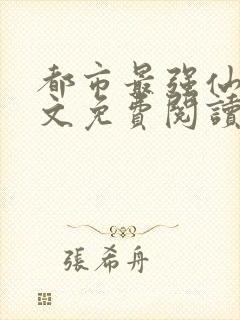 都市最强仙
文免費閱讀
張希舟